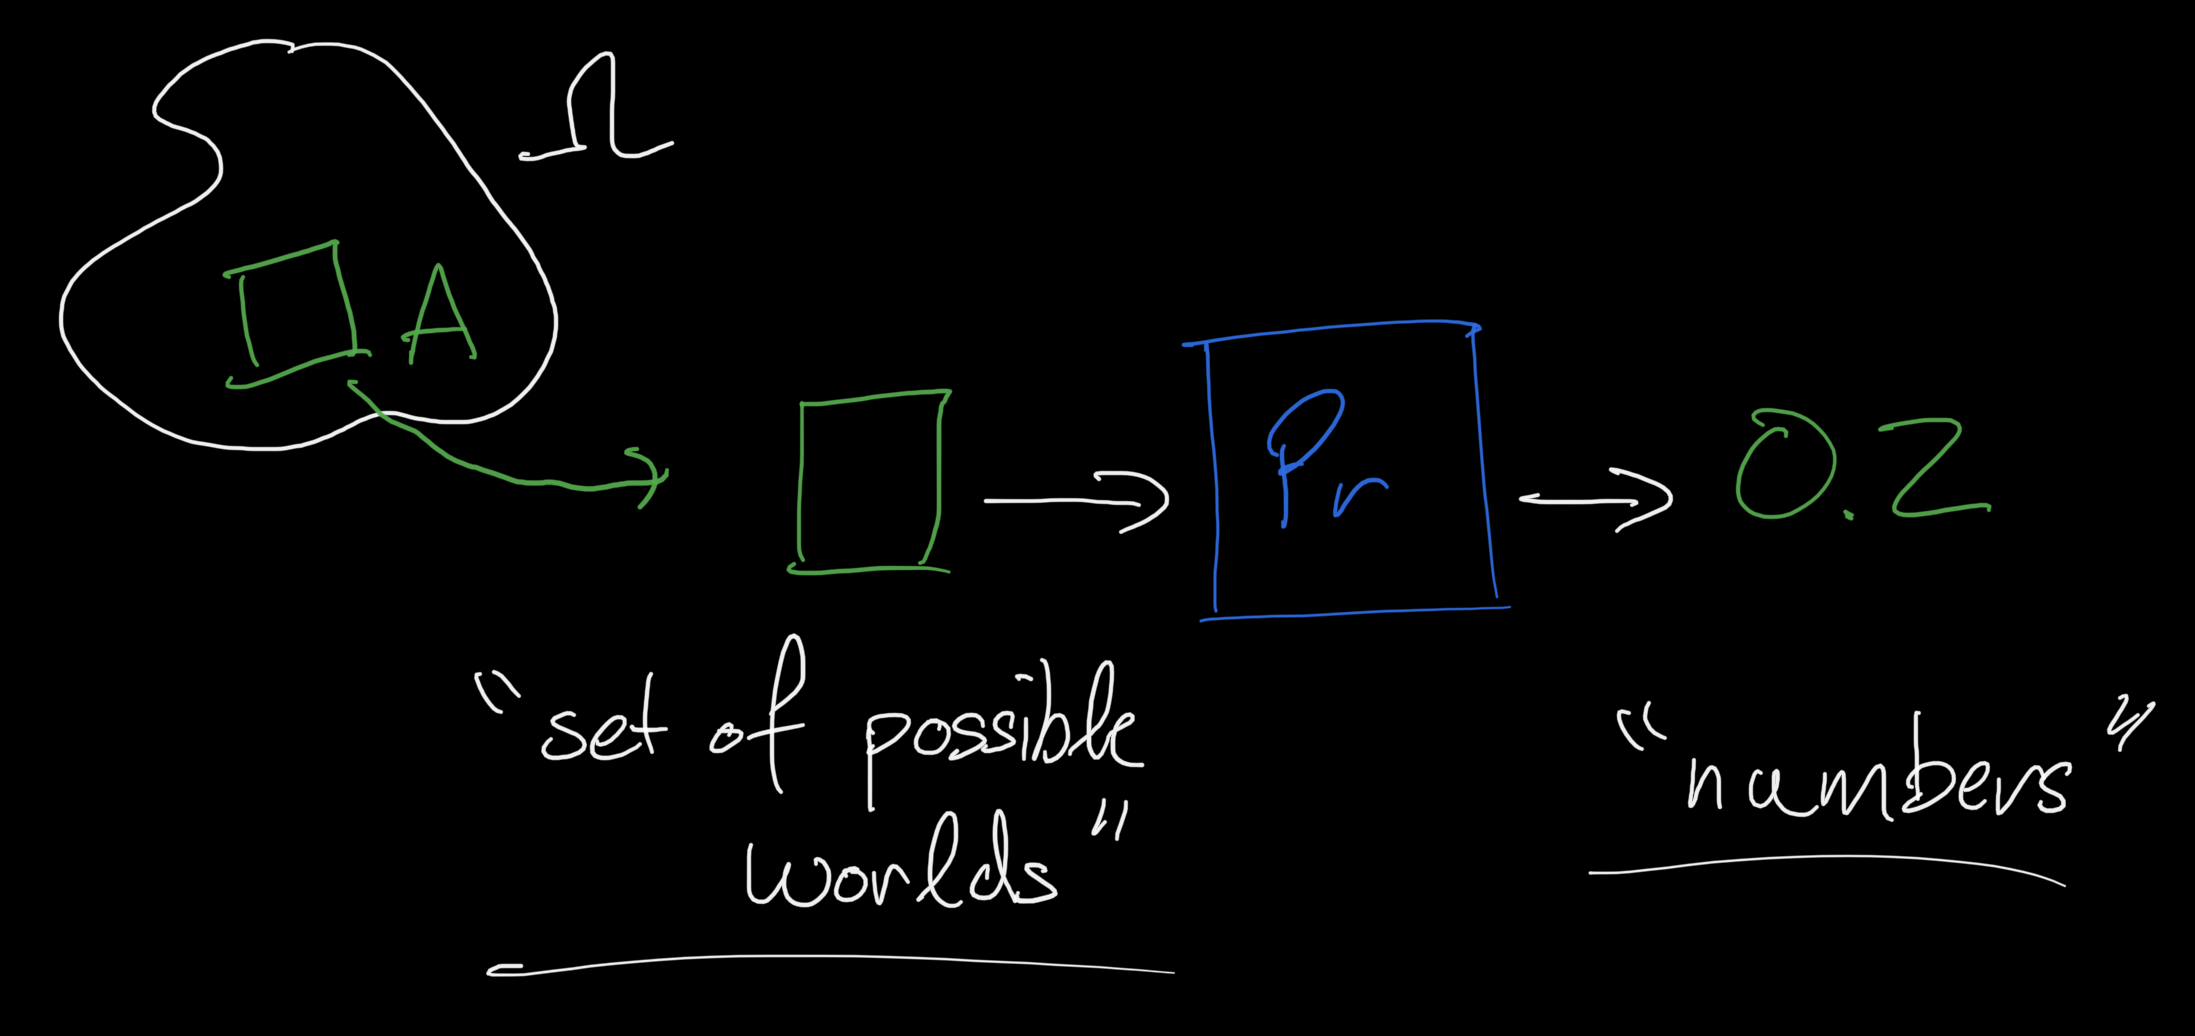 Ω
A
Pr
0.2
"set of possible
worlds"
"numbers"